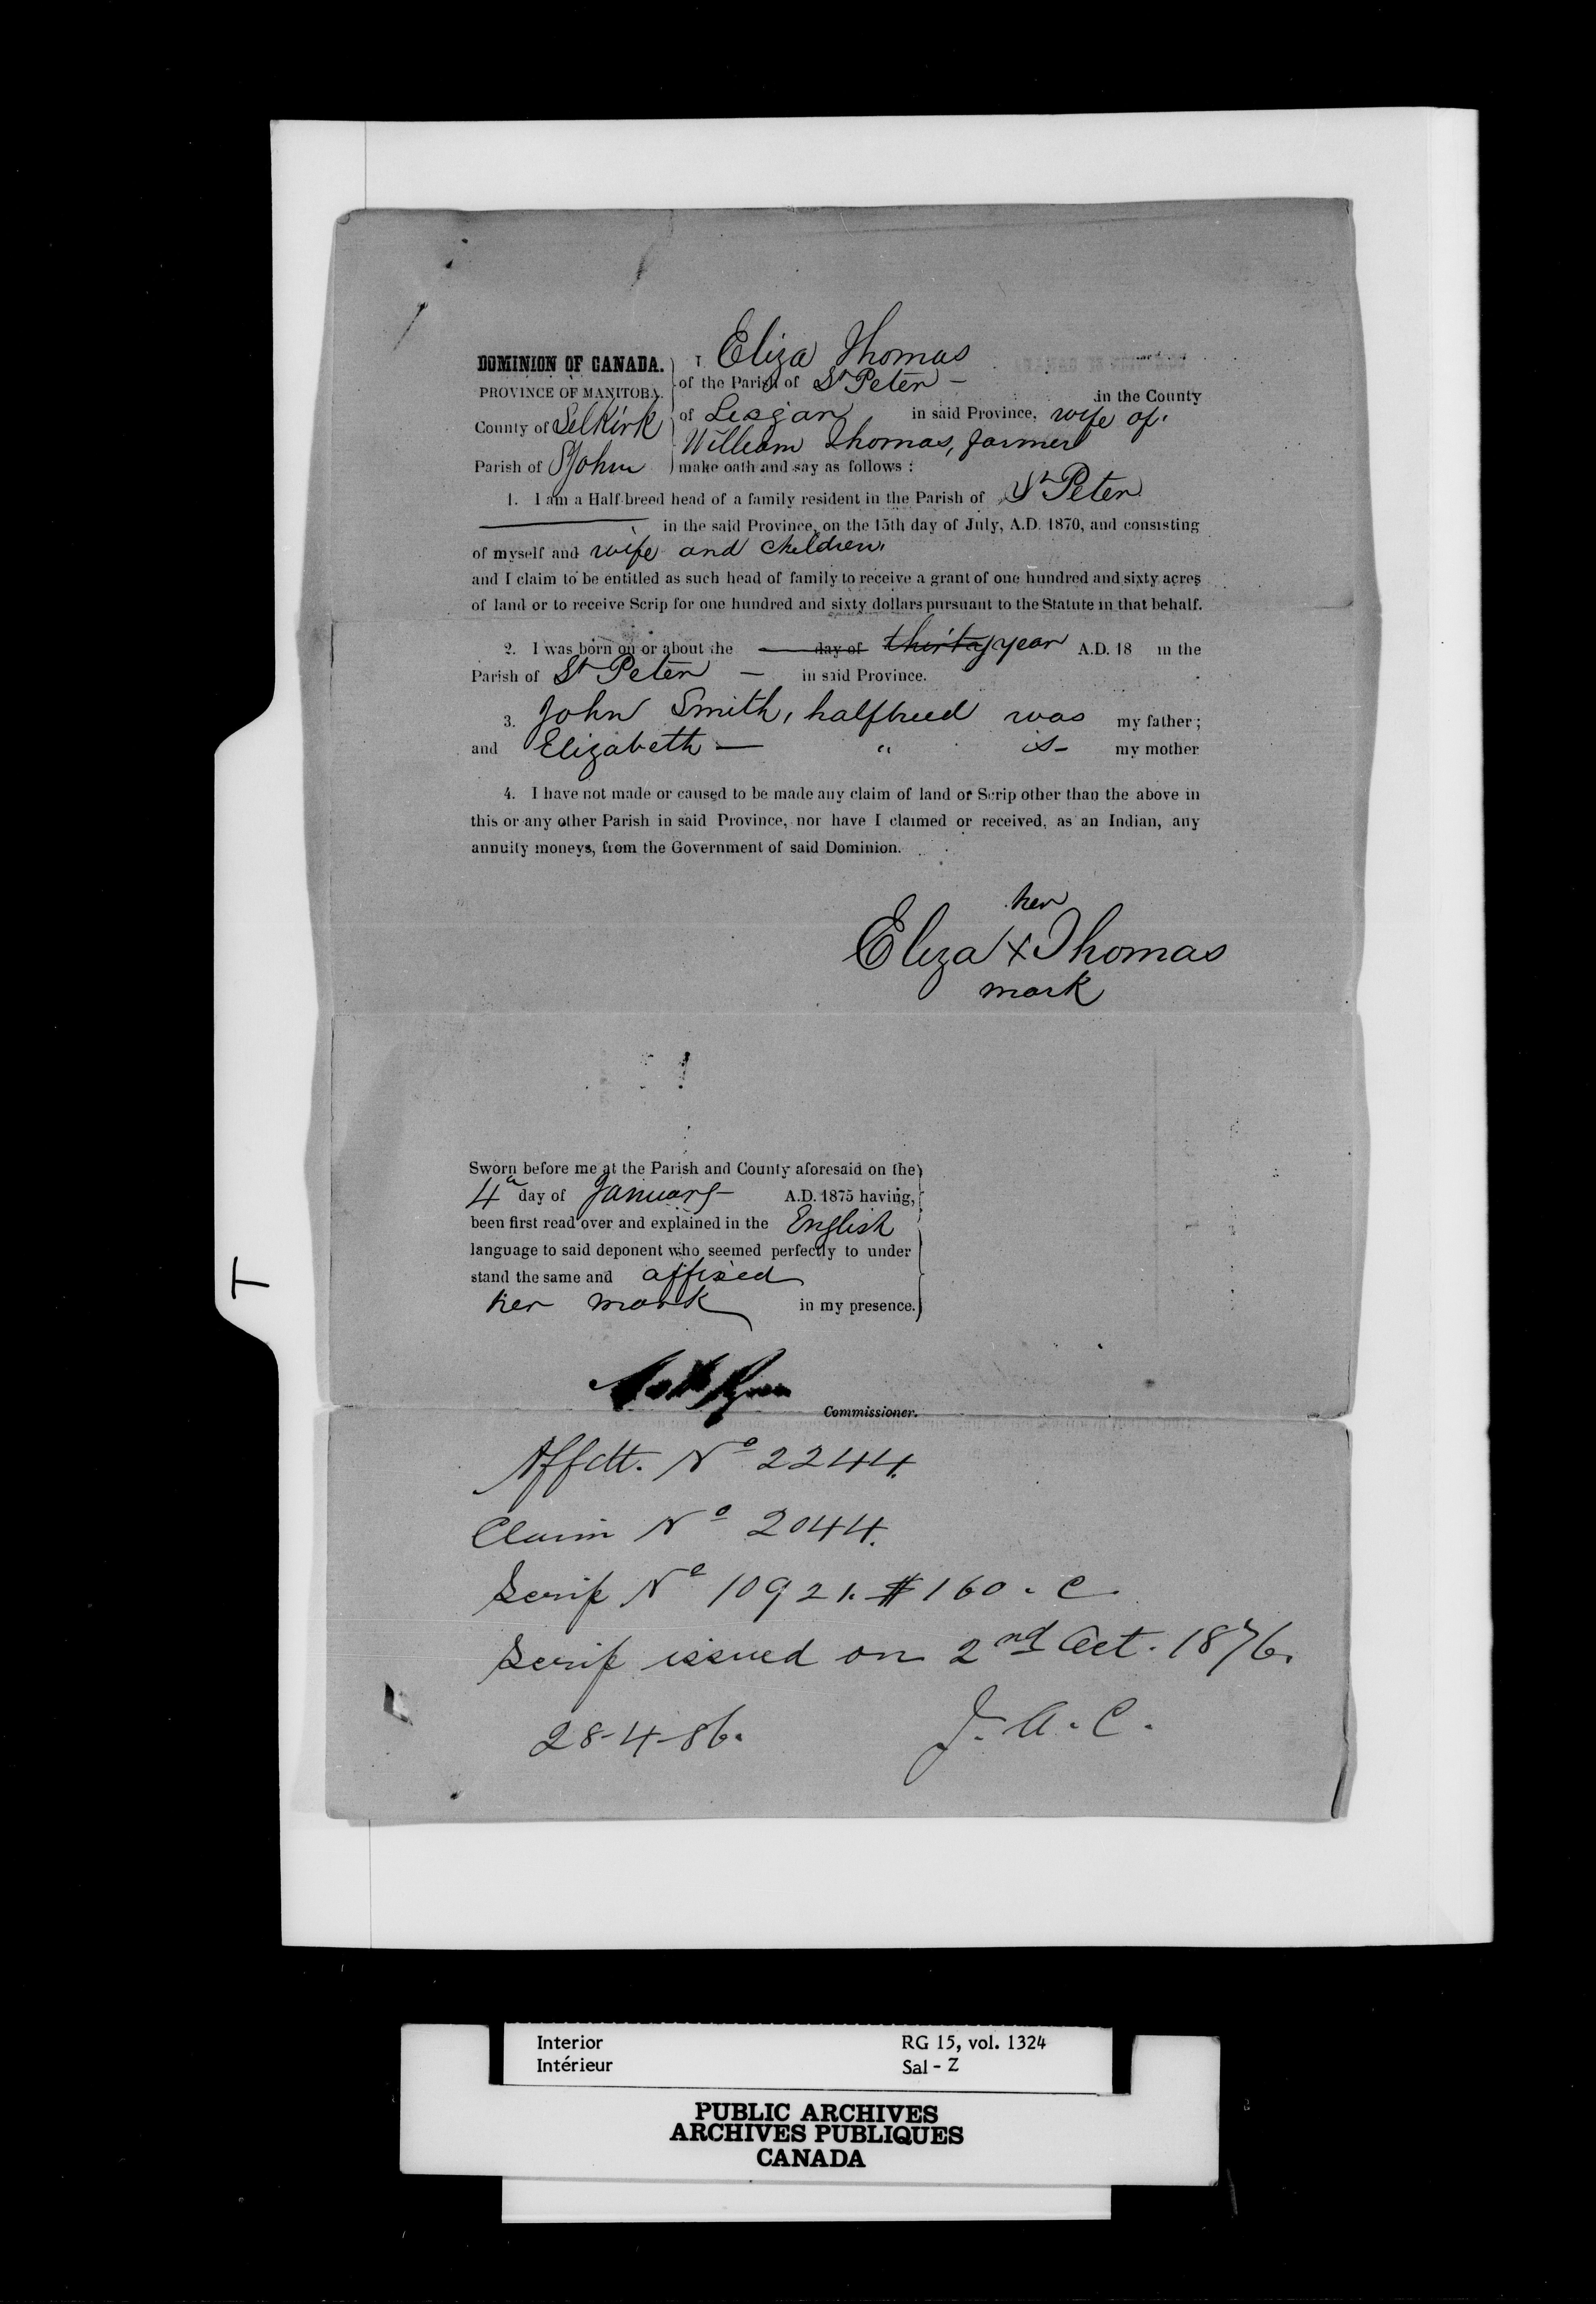 Eliza Thomas
DOMINION OF CANADA. I
PROVINCE OF MANITOBA. of the Parish of St Peter – in the County
County of Selkirk of Lisgar in said Province, wife of
William Thomas, farmer
Parish of St John make oath and say as follows :
1. I am a Half-breed head of a family resident in the Parish of St Peter
in the said Province, on the 15th day of July, A.D. 1870, and consisting
of myself and wife and children
and I claim to be entitled as such head of family to receive a grant of one hundred and sixty acres
of land or to receive Scrip for one hundred and sixty dollars pursuant to the Statute in that behalf.
2. I was born on or about the day of thirty year A.D. 18 in the
Parish of St Peter – in said Province.
3. John Smith, halfbreed was my father ;
and Elizabeth — " is – my mother
4. I have not made or caused to be made any claim of land or Scrip other than the above in
this or any other Parish in said Province, nor have I claimed or received, as an Indian, any
annuity moneys, from the Government of said Dominion.
her
Eliza X Thomas
mark
Sworn before me at the Parish and County aforesaid on the
4th day of January A.D. 1875 having,
been first read over and explained in the English
language to said deponent who seemed perfectly to under
stand the same and affixed
her mark in my presence.
Ryan
Commissioner.
Affdt. No 2244.
Claim No 2044.
Scrip No 10921. $160. C
Scrip issued on 2nd Oct. 1876.
28-4-86. J. A. C.
T
Interior RG 15, vol. 1324
Intérieur Sal - Z
PUBLIC ARCHIVES
ARCHIVES PUBLIQUES
CANADA